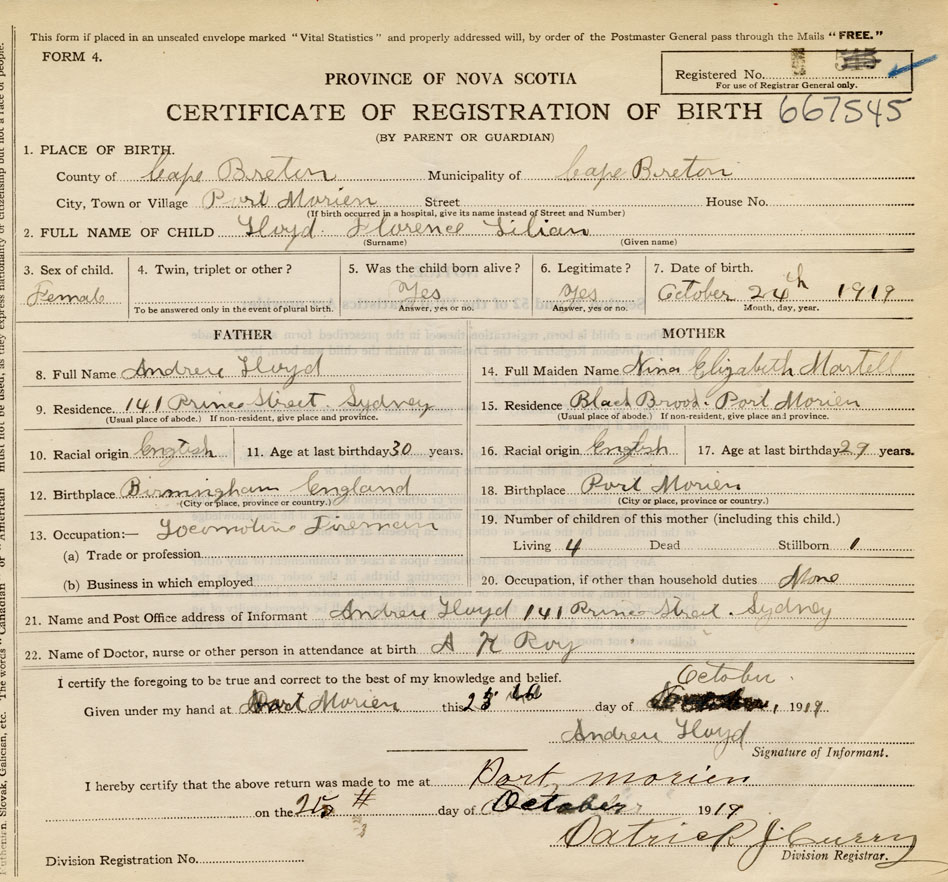 This form if placed in an unsealed envelope marked "Vital Statistics" and properly addressed will, by order of the Postmaster General pass through the Mails "FREE."
FORM 4.
Registered No.
For use of Registrar General only.
PROVINCE OF NOVA SCOTIA
CERTIFICATE OF REGISTRATION OF BIRTH 667545
(BY PARENT OR GUARDIAN)
1. PLACE OF BIRTH.
County of Cape Breton Municipality of Cape Breton
City, Town or Village Port Morien Street House No.
(If birth occurred in a hospital, give its name instead of Street and Number)
2. FULL NAME OF CHILD Lloyd Florence Lilian
(Surname) (Given name)
3. Sex of child. 4. Twin, triplet or other? 5. Was the child born alive? 6. Legitimate? 7. Date of birth.
Female Yes Yes October 24th 1919
To be answered only in the event of plural birth. Answer, yes or no. Answer, yes or no. Month, day, year.
FATHER MOTHER
8. Full Name Andrew Lloyd 14. Full Maiden Name Nina Elizabeth Martell
9. Residence 141 Prince Street. Sydney 15. Residence Black Brook Port Morien
(Usual place of abode.) If non-resident, give place and province. (Usual place of abode.) If non-resident, give place and province.
10. Racial origin English 11. Age at last birthday 30 years. 16. Racial origin English 17. Age at last birthday 29 years.
12. Birthplace Birmingham England 18. Birthplace Port Morien
(City or place, province or country.) (City or place, province or country.)
13. Occupation:— Locomotive Fireman 19. Number of children of this mother (including this child.)
(a) Trade or profession Living 4 Dead Stillborn 1
(b) Business in which employed 20. Occupation, if other than household duties None
21. Name and Post Office address of Informant Andrew Lloyd 141 Prince Street. Sydney
22. Name of Doctor, nurse or other person in attendance at birth A K Roy
I certify the foregoing to be true and correct to the best of my knowledge and belief. October
Given under my hand at Port Morien this 25th day of , 1919
Andrew Lloyd
Signature of Informant.
I hereby certify that the above return was made to me at Port Morien
on the 25 day of October 1919
Patrick J Curry
Division Registrar.
Division Registration No.